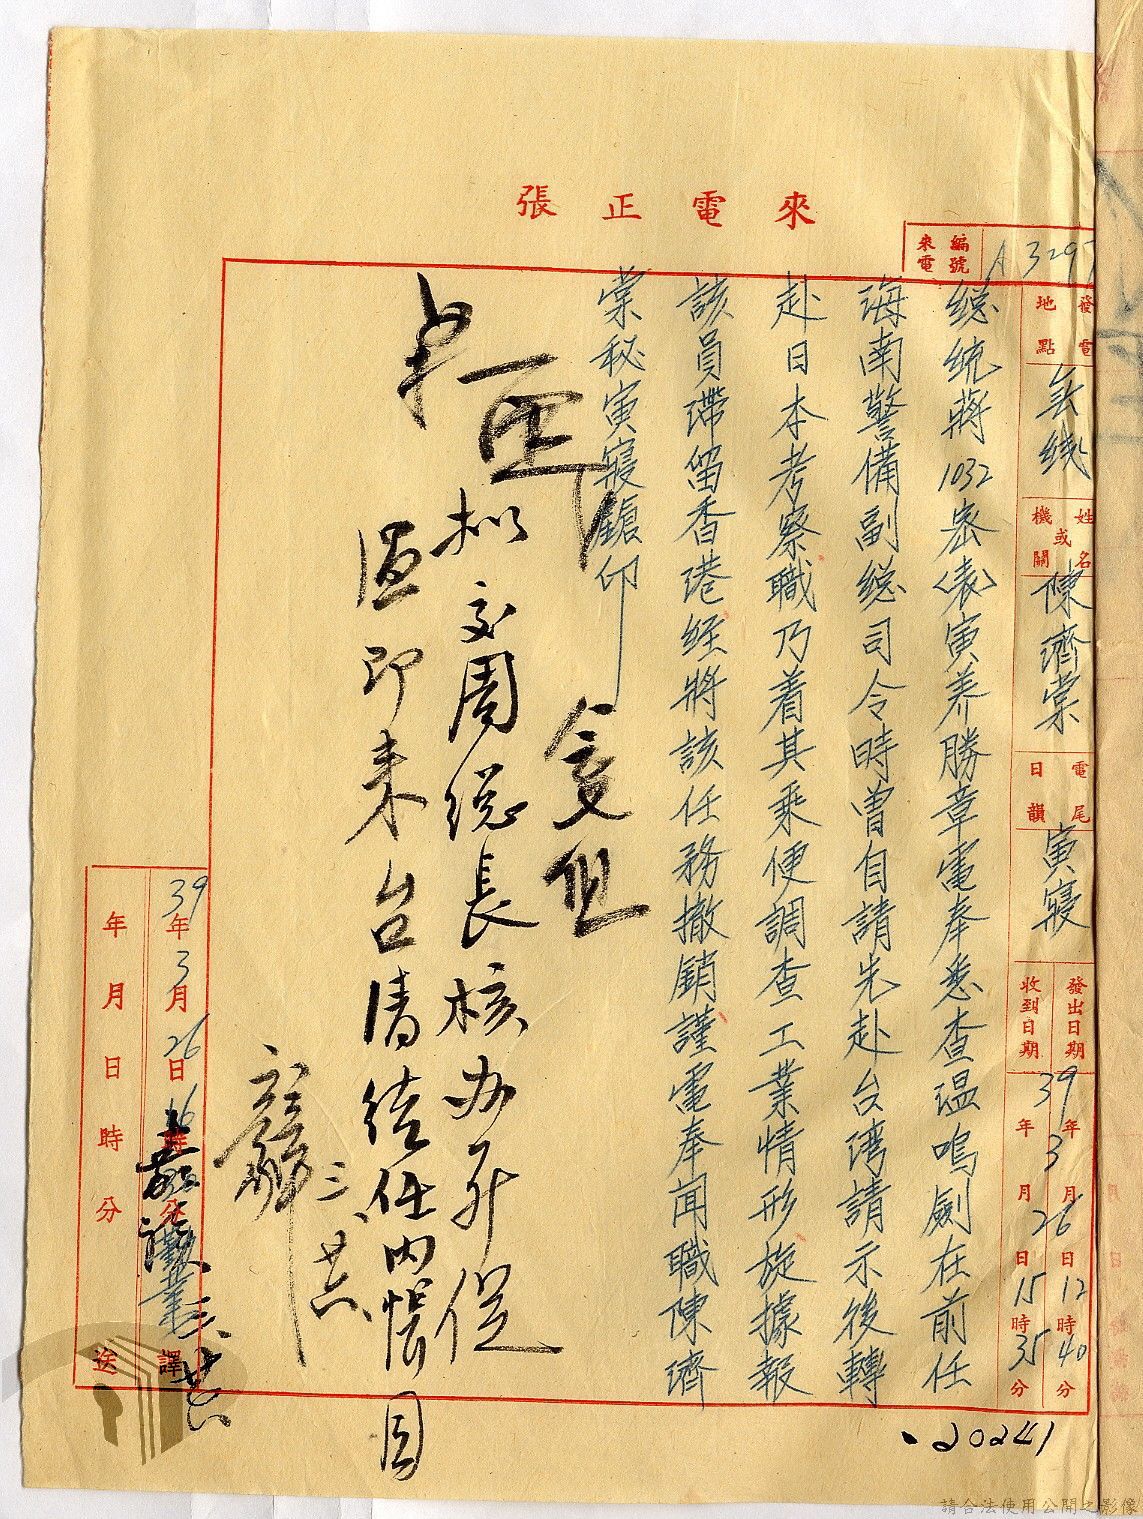 來電正張
來電編號 A 3297
發電地點 無线
姓名或機關 陳濟棠
電尾日韻 寅寢
發出日期 39年3月26日12時40分
收到日期 日15時35分
總統蔣1032密〈表〉寅养勝章電奉悉查温鳴劍在前任
海南警備副總司令時曾自請先赴台湾請示後轉
赴日本考察職乃着其乘便調查工業情形旋據報
該員滯留香港經將該任務撤銷謹電奉闻職陳濟
棠秘寅寢鎗印
擬交周總長核办並促
温即来台清结任内帳目
三、廿六
39年3月26日16時分譯
年月日時分送
20241
請合法使用公開之影像